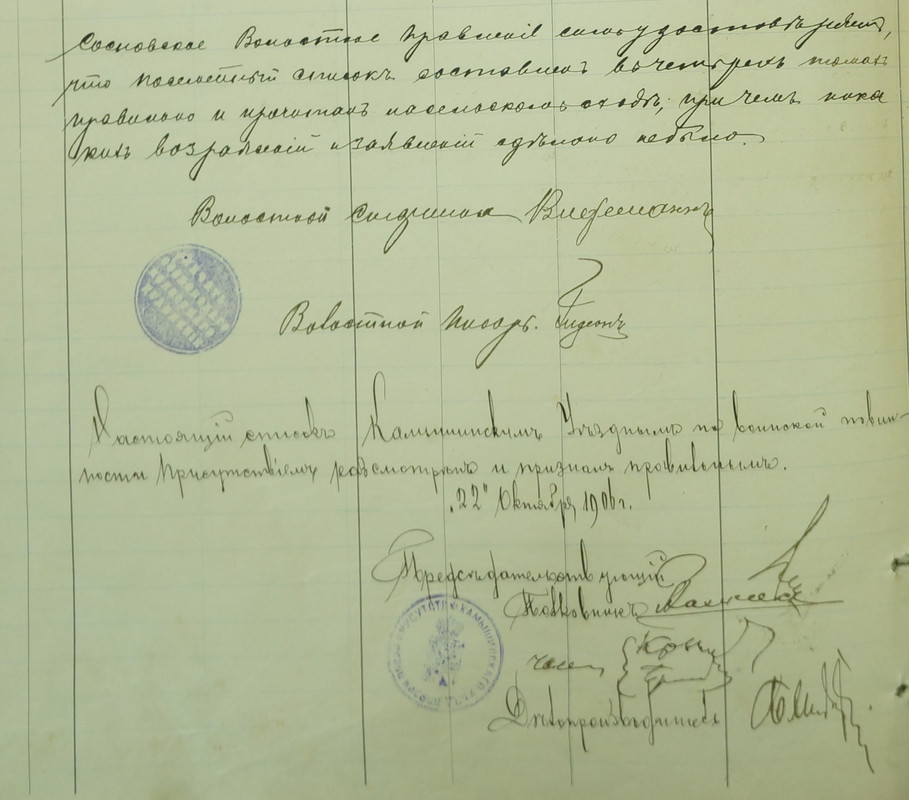 Сосновское Волостное Правленіе симъ удостовѣряетъ,
что посемейный списокъ составленъ въ четырехъ томахъ
правильно и прочитанъ на сельскомъ сходѣ, при чемъ ника
кихъ возраженій и заявленій сдѣлано не было.
Волостной Старшина
Волостной Писарь. Гидеонъ
Настоящій списокъ Камышинскимъ Уѣзднымъ по воинской повин-
ности Присутствіемъ разсмотрѣнъ и признанъ правильнымъ.
„22" Октября 1906 г.
Предсѣдательствующій
Полковникъ
ПРИСУТСТВ КАМЫШИНСКАГО УѢЗДА ПО ВОИН
члены
Дѣлопроизводитель